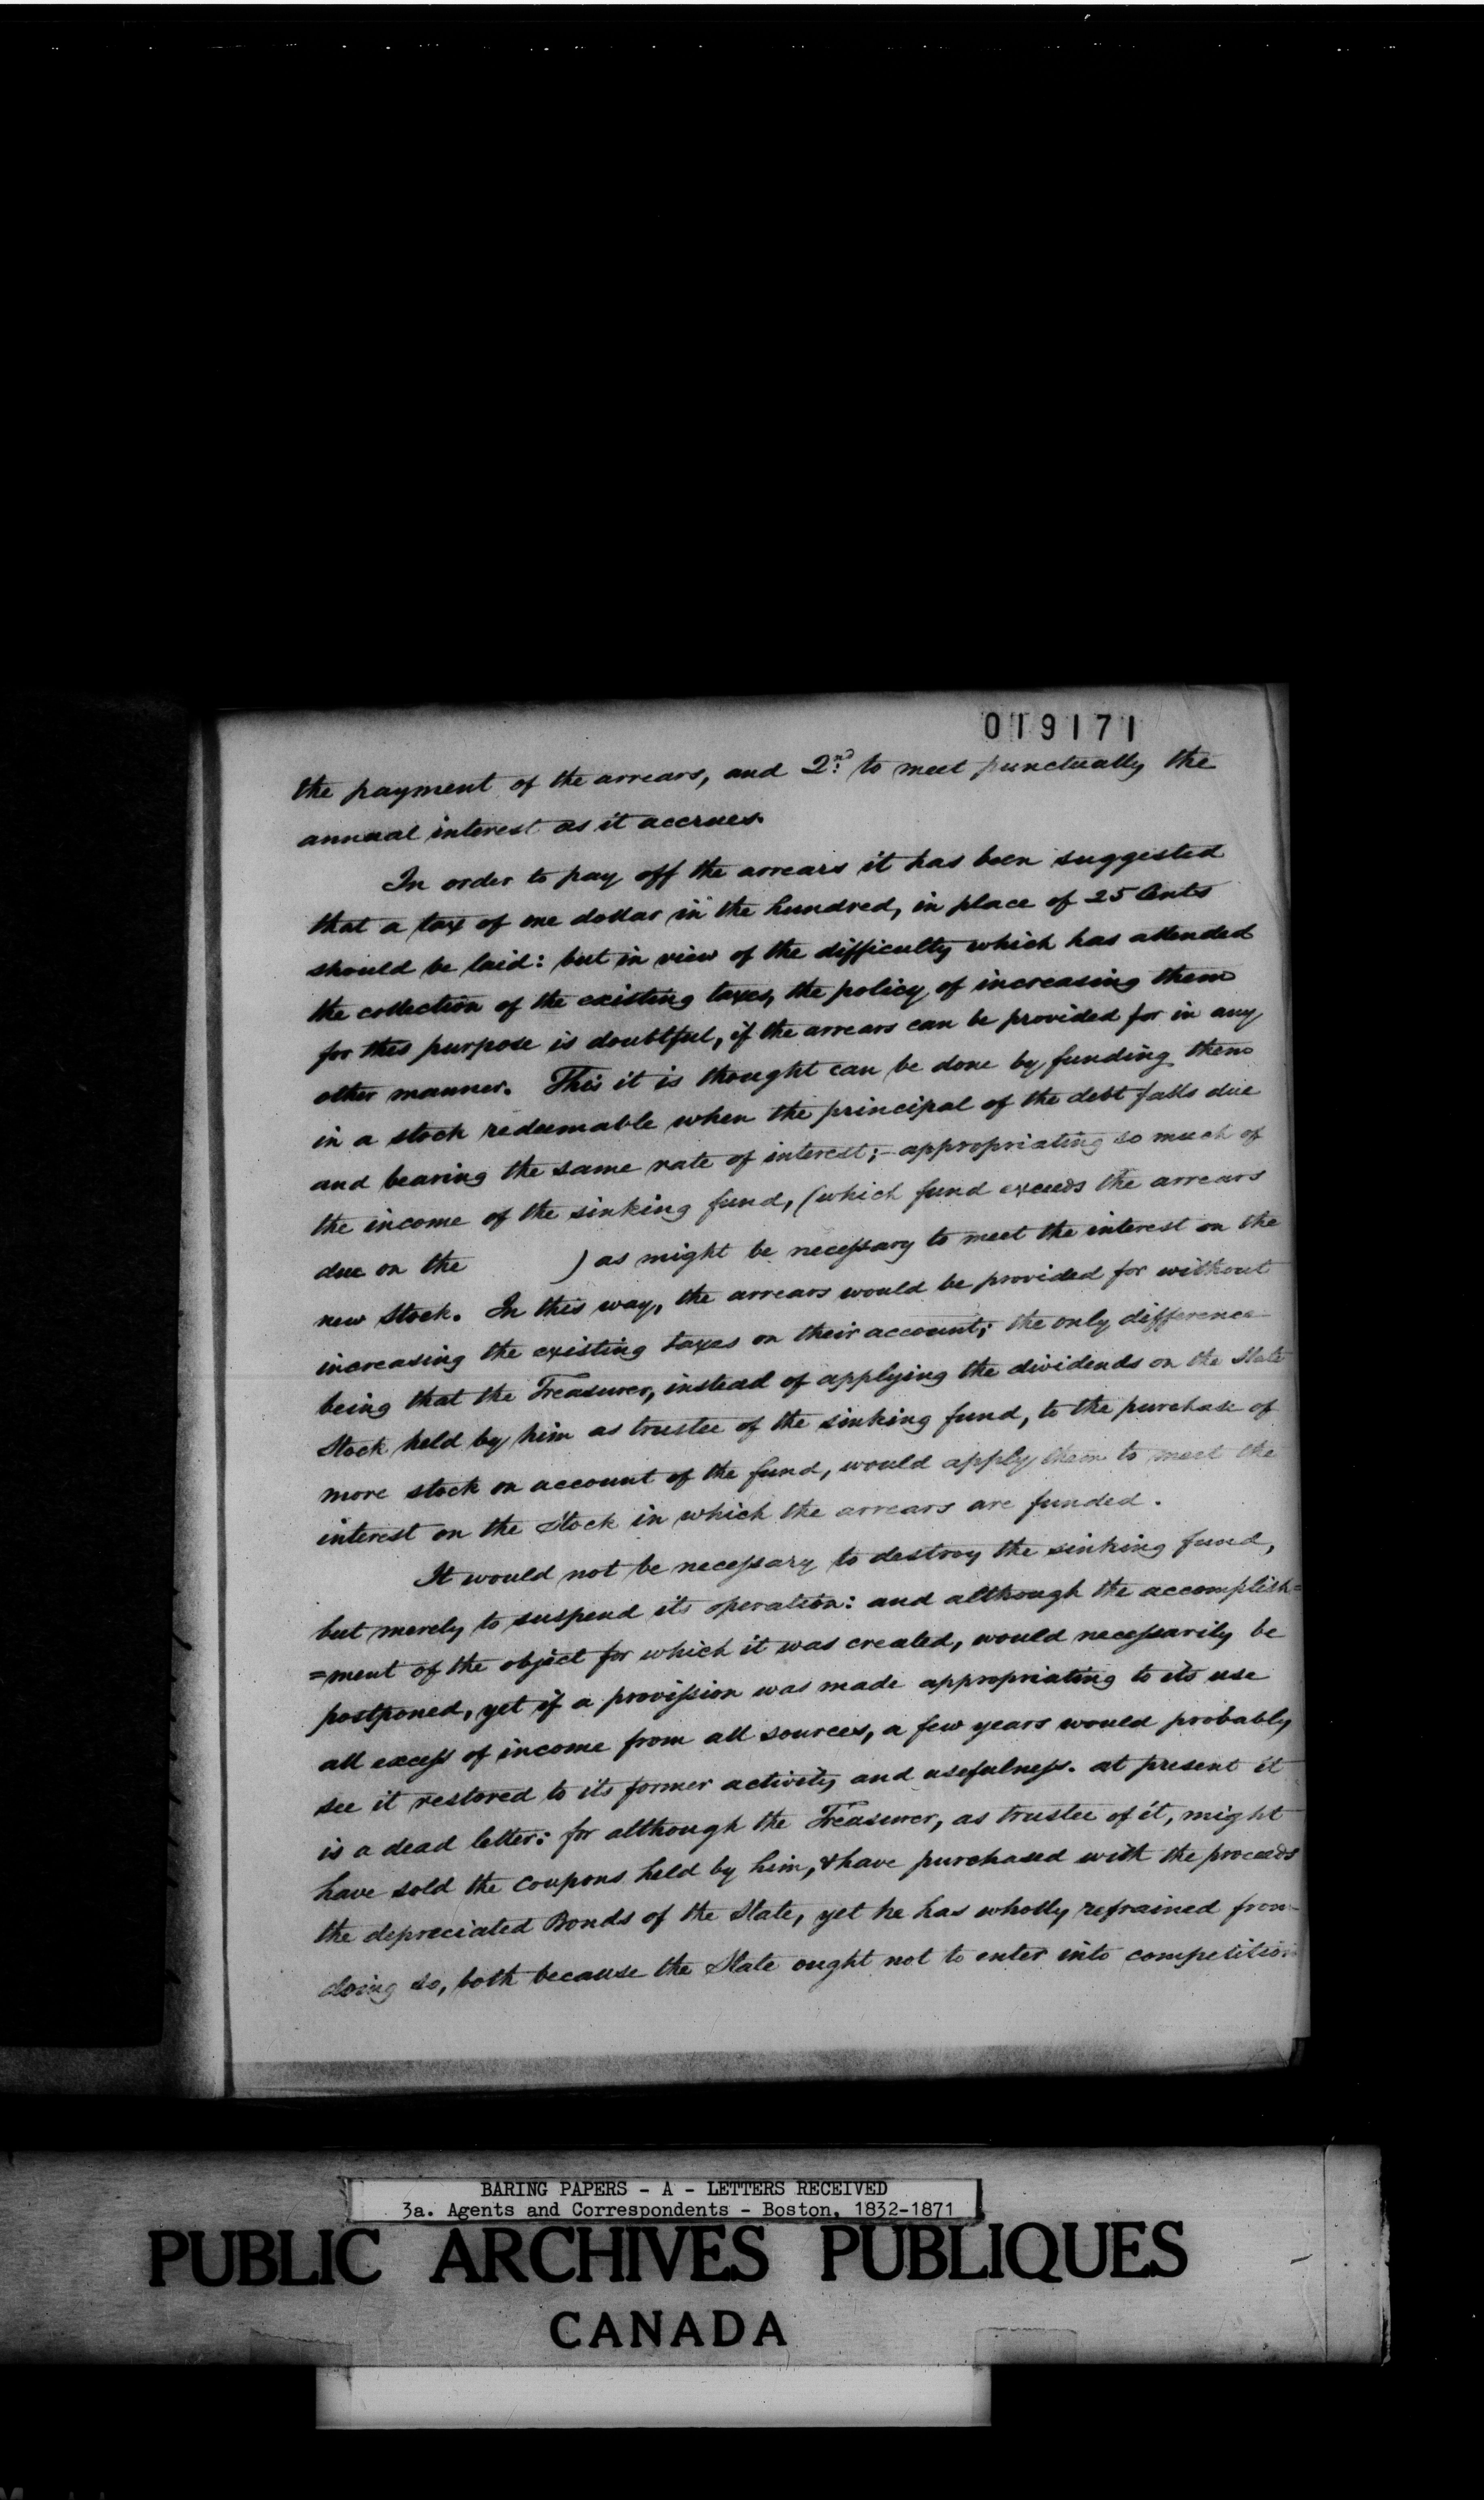 019171
the payment of the arrears, and 2nd to meet punctually the
annual interest as it accrues.
In order to pay off the arrears it has been suggested
that a tax of one dollar in the hundred, in place of 25 Cents
should be laid: but in view of the difficulty which has attended
the collection of the existing taxes, the policy of increasing them
for this purpose is doubtful, if the arrears can be provided for in any
other manner. This it is thought can be done by funding them
in a stock redeemable when the principal of the debt falls due
and bearing the same rate of interest; - appropriating so much of
the income of the sinking fund, (which fund exceeds the arrears
due on the ) as might be necessary to meet the interest on the
new Stock. In this way, the arrears would be provided for without
increasing the existing taxes on their account; the only difference
being that the Treasurer, instead of applying the dividends on the State
Stock held by him as trustee of the sinking fund, to the purchase of
more stock on account of the fund, would apply them to meet the
interest on the Stock in which the arrears are funded.
It would not be necessary to destroy the sinking fund,
but merely to suspend its operation: and although the accomplish=
=ment of the object for which it was created, would necessarily be
postponed, yet if a provission was made appropriating to its use
all excess of income from all sources, a few years would probably
see it restored to its former activity and usefulness. at present it
is a dead letter: for although the Treasurer, as trustee of it, might
have sold the coupons held by him, & have purchased with the proceeds
the depreciated Bonds of the State, yet he has wholly refrained from
doing so, both because the State ought not to enter into competition
BARING PAPERS - A - LETTERS RECEIVED
3a. Agents and Correspondents - Boston, 1832-1871
PUBLIC ARCHIVES PUBLIQUES
CANADA